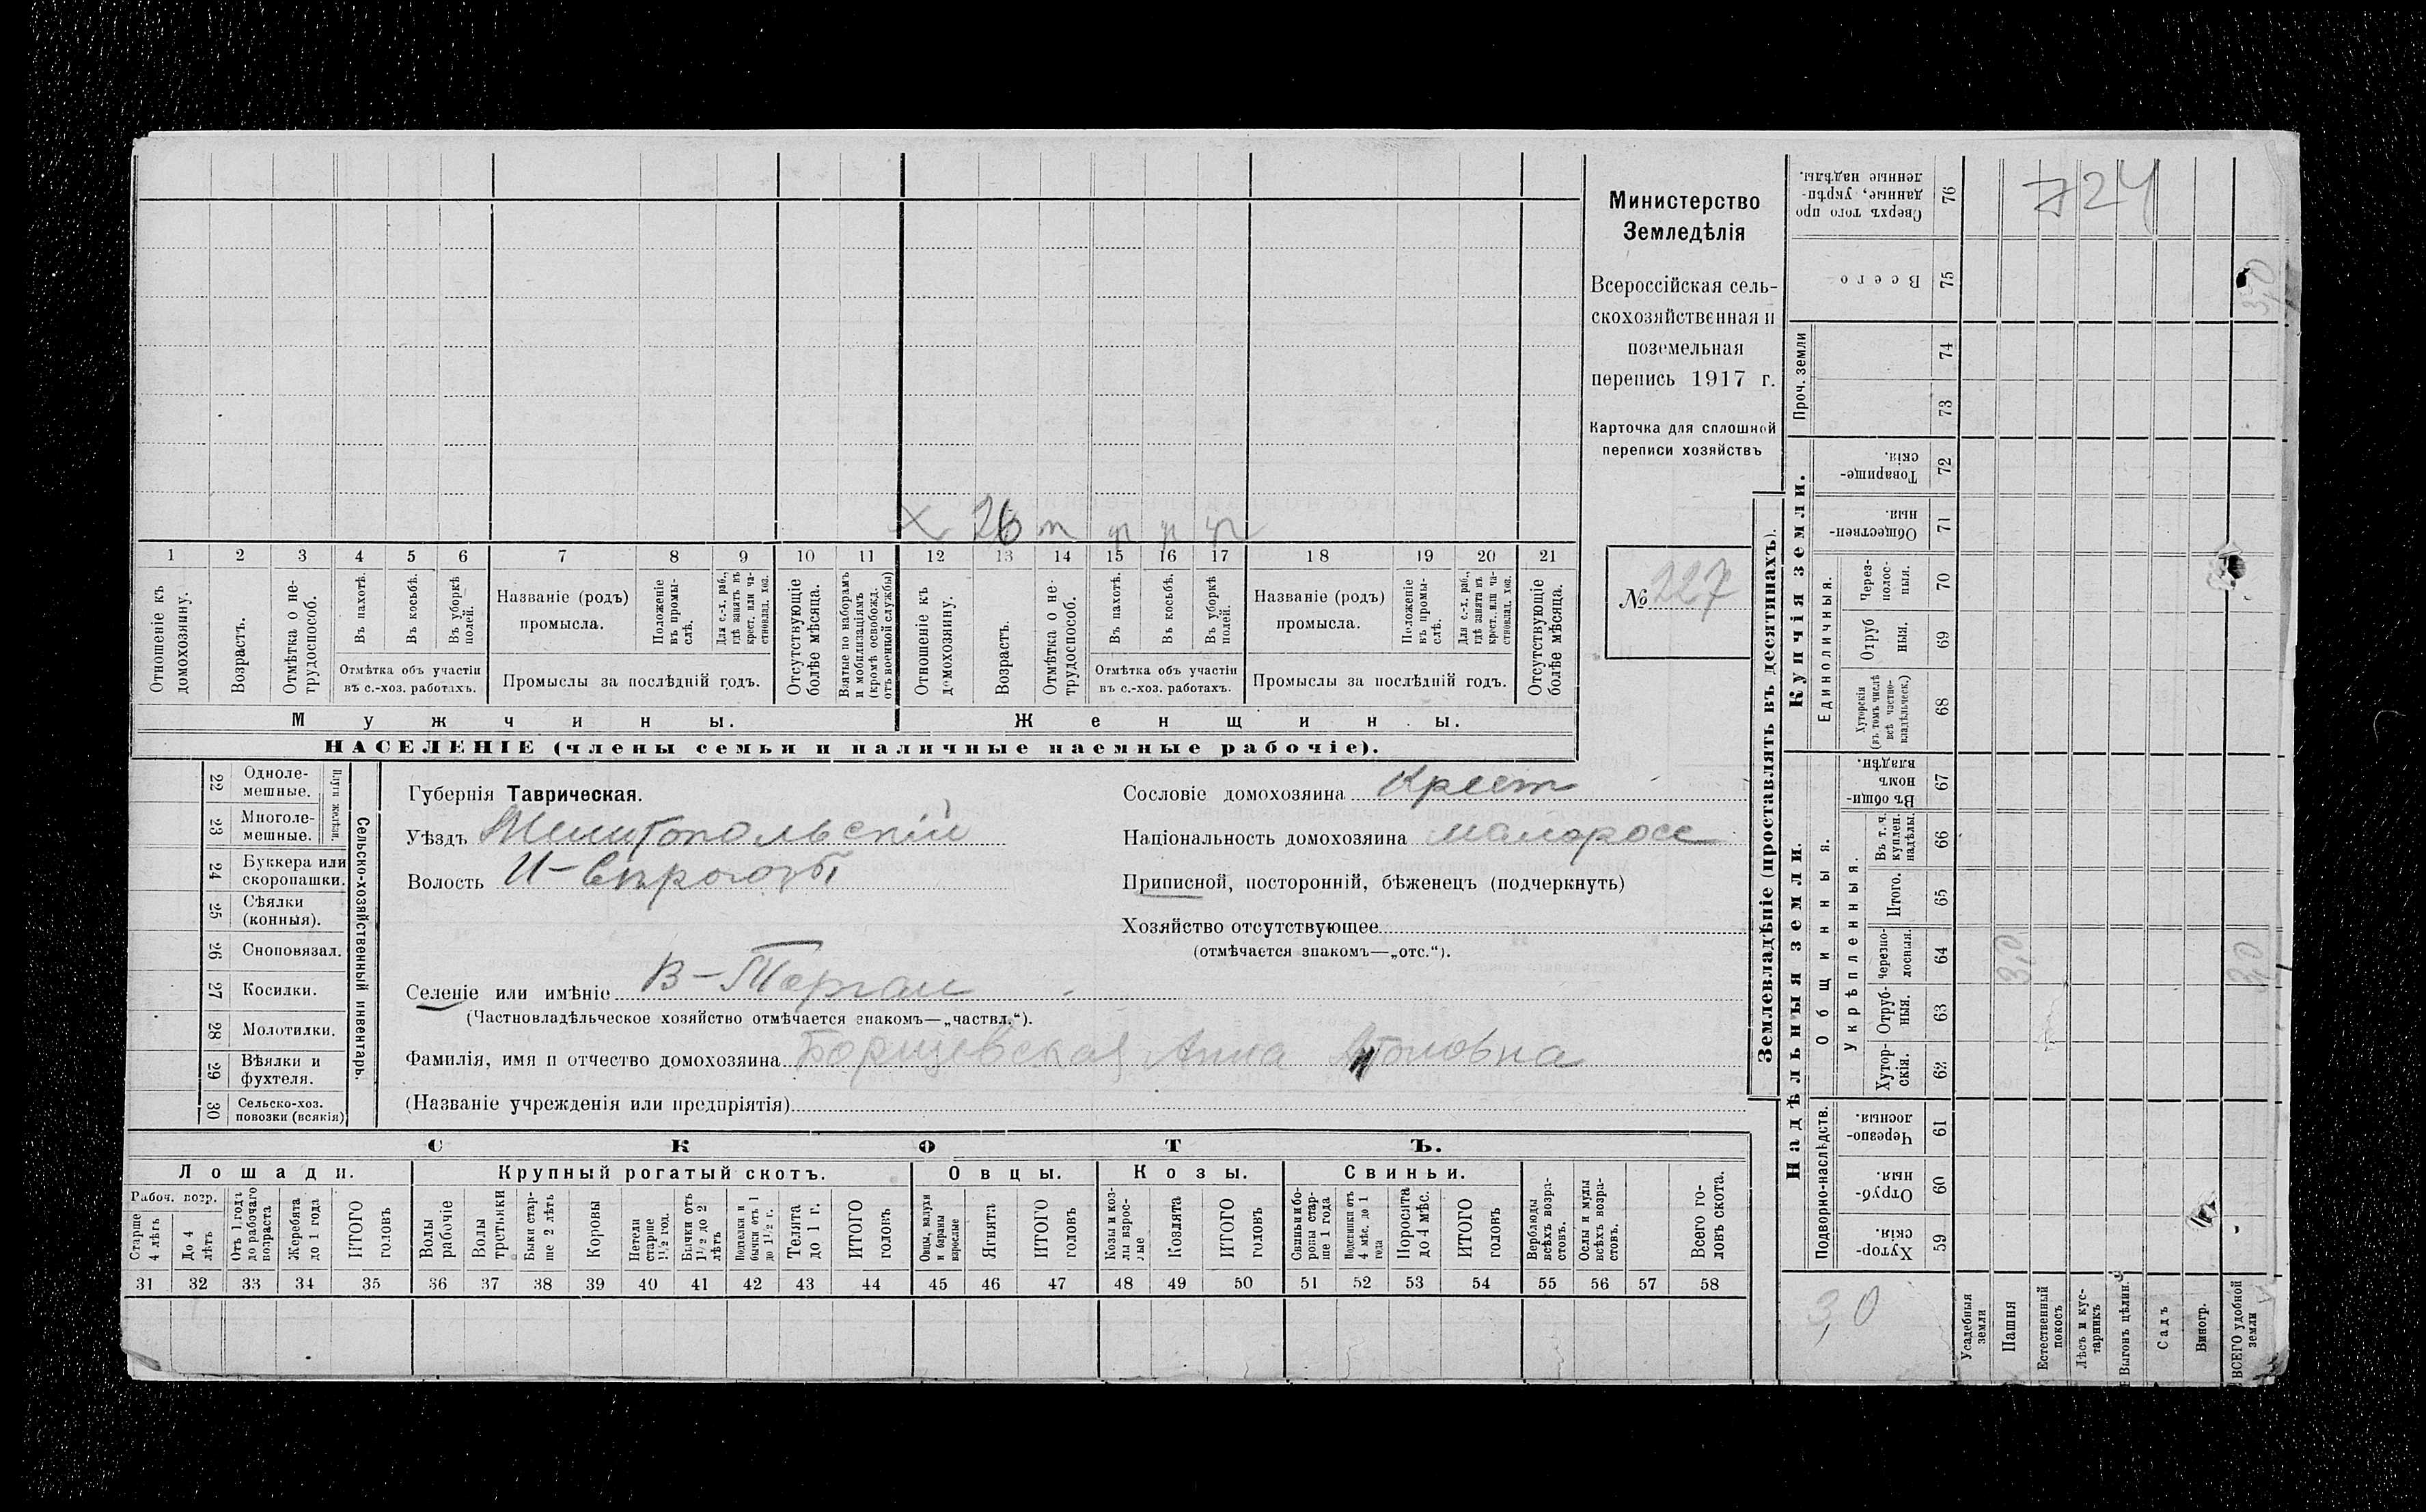 Министерство
Земледѣлія
Всероссійская сель-
скохозяйственная и
поземельная
перепись 1917 г.
Карточка для сплошной
переписи хозяйствъ
№ 227
х 26 т п п п
1 2 3 4 5 6 7 8 9 10 11 12 13 14 15 16 17 18 19 20 21
Отношеніе къ домохозяину.
Возрастъ.
Отмѣтка о не-трудоспособ.
Въ пахотѣ.
Въ косьбѣ.
Въ уборкѣ полей.
Отмѣтка объ участіи
въ с.-хоз. работахъ.
Названіе (родъ)
промысла.
Положеніе въ промы-слѣ.
Для с.-х. раб., гдѣ занятъ въ крест. или ча-стновлад. хоз.
Промыслы за послѣдній годъ.
Отсутствующіе болѣе мѣсяца.
Взятые по наборамъ и мобилизаціямъ (кромѣ освобожд. отъ военной службы)
Отношеніе къ домохозяину.
Возрастъ.
Отмѣтка о не-трудоспособ.
Въ пахотѣ.
Въ косьбѣ.
Въ уборкѣ полей.
Отмѣтка объ участіи
въ с.-хоз. работахъ.
Названіе (родъ)
промысла.
Положеніе въ промы-слѣ.
Для с.-х. раб., гдѣ занята въ крест. или ча-стновлад. хоз.
Промыслы за послѣдній годъ.
Отсутствующіе болѣе мѣсяца.
Мужчины.
Женщины.
НАСЕЛЕНІЕ (члены семьи и наличные наемные рабочіе).
22 Одноле-мешные.
23 Многоле-мешные.
24 Буккера или скоропашки.
25 Сѣялки (конныя).
26 Сноповязал.
27 Косилки.
28 Молотилки.
29 Вѣялки и фухтеля.
30 Сельско-хоз. повозки (всякія)
Сельско-хозяйственный инвентарь.
Губернія Таврическая.
Уѣздъ Мелитопольскій
Волость
Селеніе или имѣніе В-Торгаи
(Частновладѣльческое хозяйство отмѣчается знакомъ—„частвл.“).
Фамилія, имя и отчество домохозяина Борщевская Анна
(Названіе учрежденія или предпріятія)
Сословіе домохозяина Крест
Національность домохозяина малоросс
Приписной, посторонній, бѣженецъ (подчеркнуть)
Хозяйство отсутствующее
(отмѣчается знакомъ—„отс.“).
СКОТЪ.
Лошади. Крупный рогатый скотъ. Овцы. Козы. Свиньи.
Рабоч. возр.
Старше 4 лѣтъ
До 4 лѣтъ
Отъ 1 года до рабочаго возраста
Жеребята до 1 года
ИТОГО головъ
Волы рабочіе
Волы третьяки
Быки стар-ше 2 лѣтъ
Коровы
Нетели старше 1½ год.
Бычки отъ 1½ до 2 лѣтъ
Телята до 1 г.
ИТОГО головъ
Овцы, валухи и бараны взрослые
Ягнята
ИТОГО головъ
Козы и коз-лы взрос-лые
Козлята
ИТОГО головъ
Свиньи и бо-ровы стар-ше 1 года
Подсвинки отъ 4 мѣс. до 1 года
Поросята до 4 мѣс.
ИТОГО головъ
Верблюды всѣхъ возра-стовъ.
Ослы и мулы всѣхъ возра-стовъ.
Всего го-ловъ скота.
31 32 33 34 35 36 37 38 39 40 41 42 43 44 45 46 47 48 49 50 51 52 53 54 55 56 57 58
Землевладѣніе (проставлять въ десятинахъ).
Сверхъ того про-данные, укрѣп-ленные надѣлы. 76
724
Всего 75
3,0
Проч. земли
74
73
Купчія земли.
Товарище-скія. 72
Обществен-ныя. 71
Единоличныя.
Через-полос-ныя. 70
Отруб ныя. 69
Хуторскія (въ томъ числѣ всѣ частно-владѣльческ.) 68
Надѣльныя земли.
Общинныя.
Въ общи-номъ владѣн. 67
Укрѣпленныя.
Въ т. ч. куплен. надѣлы. 66
Итого. 65
Черезпо-лосныя. 64
3,0
3,0
Отруб-ныя. 63
Хутор-скія. 62
Подворно-наслѣдств.
Черезпо-лосныя. 61
Отруб-ныя. 60
Хутор-скія. 59
3,0
Усадебныя земли
Пашня
Естественный покосъ
Лѣсъ и кус-тарникъ
Выгонъ цѣлин.
Садъ
Виногр.
ВСЕГО удобной земли